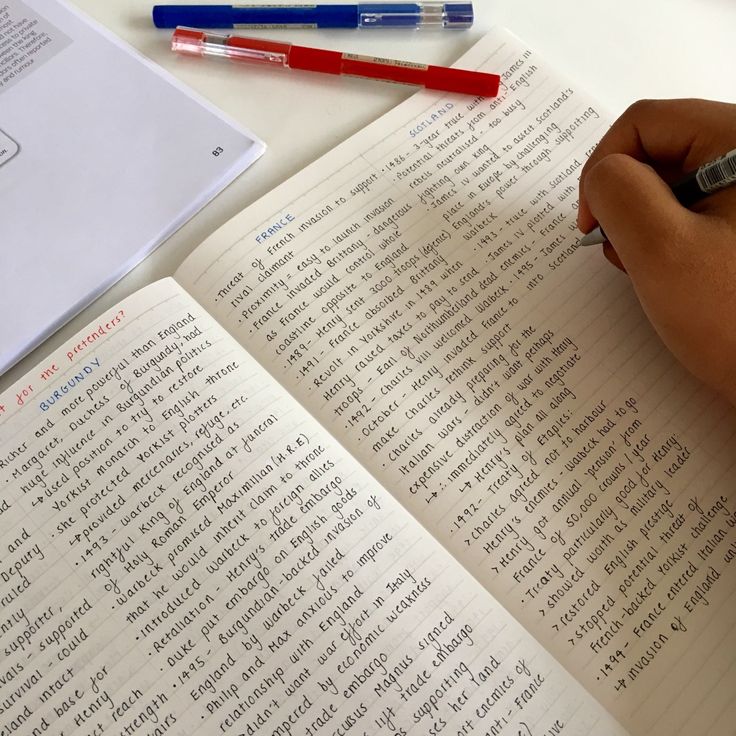 83
t for the pretenders?
BURGUNDY
Richer and more powerful than England
· Margaret, Duchess of Burgundy, had
huge influence in Burgundian politics
↳ used position to try to restore
Yorkist monarch to English throne
· she protected Yorkist plotters
↳ provided mercenaries, refuge, etc.
· 1493 - Warbeck recognised as
rightful King of England at funeral
of Holy Roman Emperor
· Warbeck promised Maximillian (H.R.E)
that he would inherit claim to throne
· introduced Warbeck to foreign allies
Retaliation - Henry's trade embargo
Duke put embargo on English goods
· 1495 - Burgundian-backed invasion of
England by Warbeck failed
· Philip and Max anxious to improve
relationship with England
didn't want war effort in Italy
hampered by economic weakness
trade embargo
Magnus signed
lift trade embargo
supporting
her land
enemies of
anti-France
and
Deputy
ruled
supporter,
- supported
survival - could
and intact
and base for
Henry
reach
strength
FRANCE
· Threat of French invasion to support
rival claimant
· Proximity = easy to launch invasion
· France invaded Brittany - dangerous
as France would control whole
coastline opposite to England
· 1489 - Henry sent 3000 troops (defence)
· 1491 - France absorbed Brittany
· Revolt in Yorkshire in 1489 when
Henry raised taxes to pay to send
troops - Earl of Northumberland dead
· 1492 - Charles VIII welcomed Warbeck
· October - Henry invaded France to
make Charles rethink support
· Charles already preparing for the
Italian wars - didn't want perhaps
expensive distraction of war with Henry
↳ ∴ immediately agreed to negotiate
→ Henry's plan all along
· 1492 - Treaty of Etaples:
> Charles agreed not to harbour
Henry's enemies - Warbeck had to go
> Henry got annual 'pension' from
France of 50,000 crowns / year
· Treaty particularly good for Henry;
> showed worth as military leader
> restored English prestige
> stopped potential threat of
French-backed Yorkist challenge
· 1494 - France entered Italian
↳ invasion of England
SCOTLAND
· 1486 - 3-year truce with James III
Potential threats from anti-English
rebels neutralised - too busy
fighting own king
· James IV wanted to assert Scotland's
place in Europe by challenging
England's power through supporting
Warbeck
· 1493 - truce with Scotland
James IV plotted with
enemies - France
· 1495 - James
into Scotland